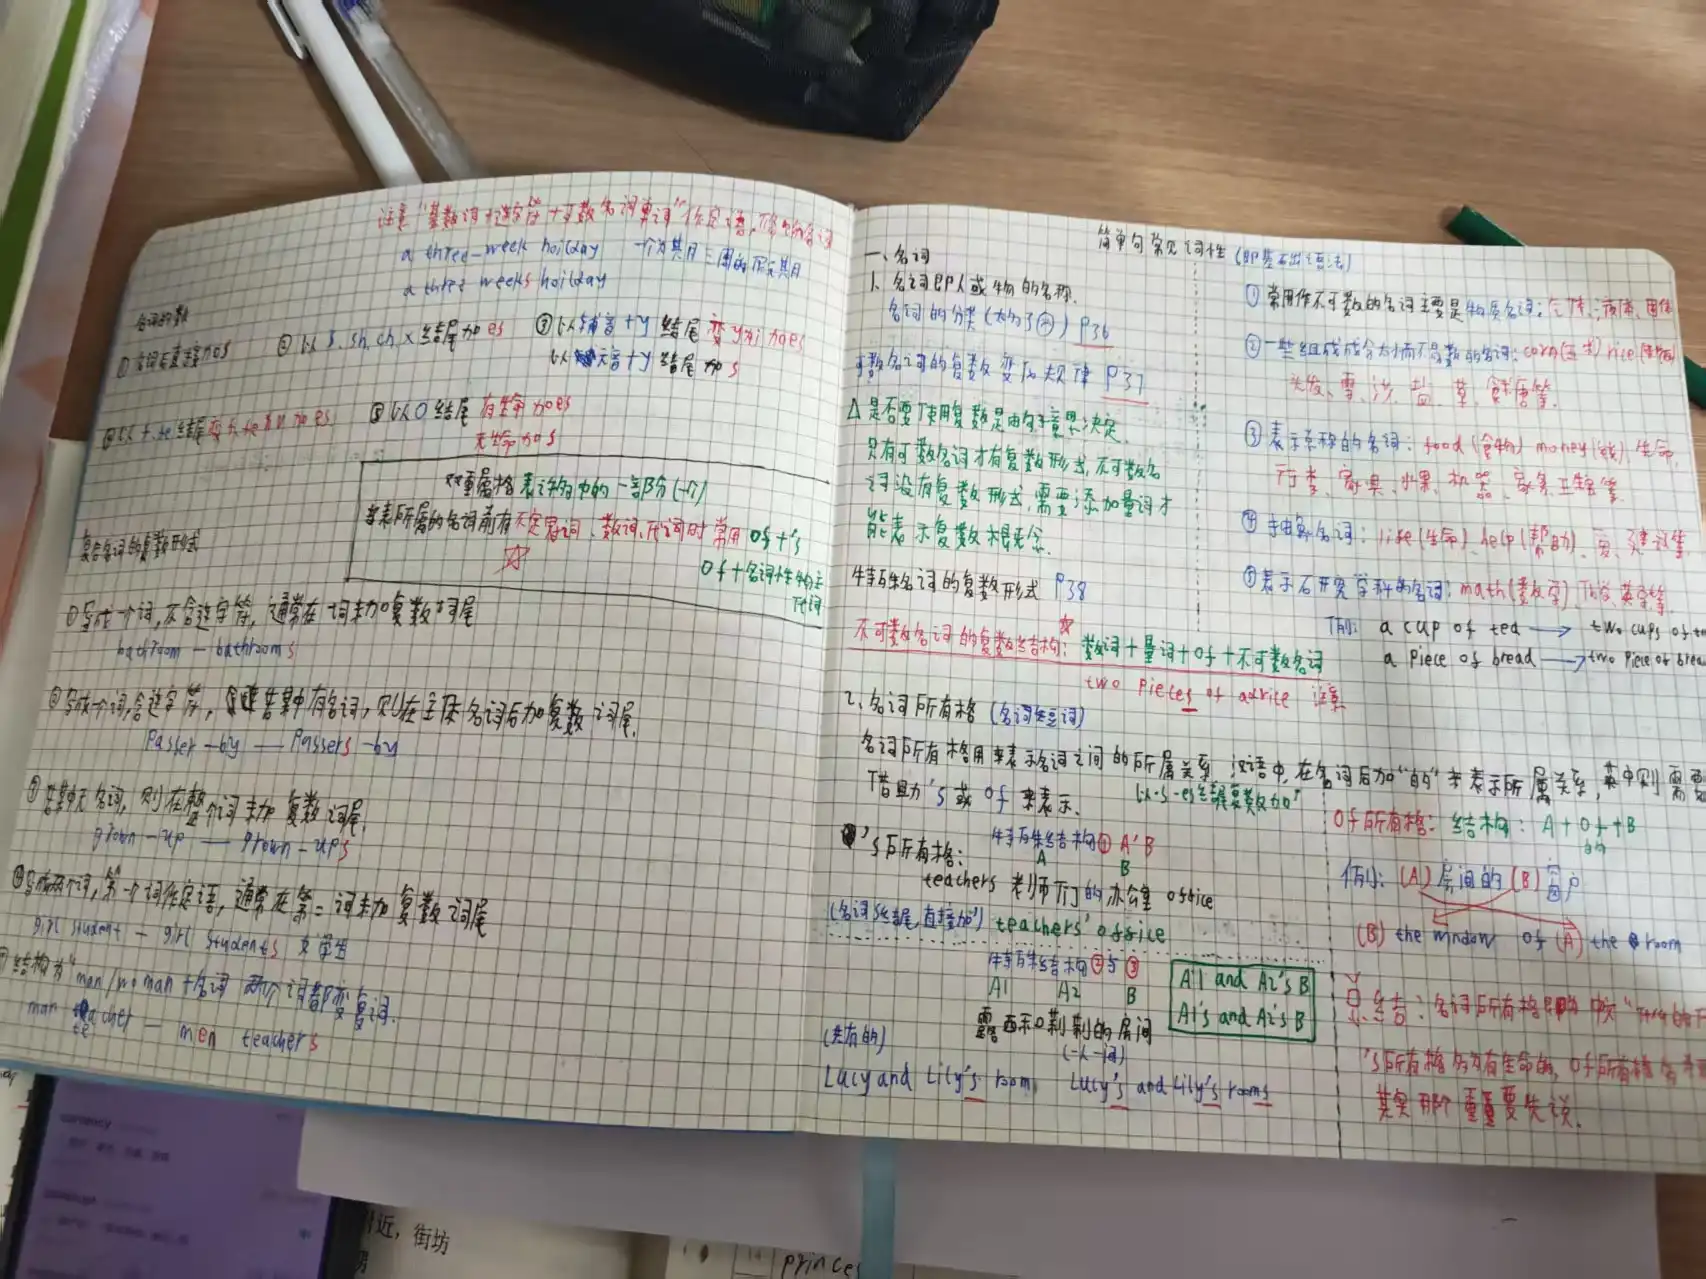 注意"基数词+连字符+可数名词单词"作定语,修饰名词
a three-week hoilday 一个为其月三周的假其月
a three weeks hoilday
名词的数
① 名词后直接加s
② 以 s. sh. ch. x 结尾加es
③ 以辅音+y 结尾 变y为i加es
以元音+y 结尾 加s
⑤ 以O结尾 有生命加es
无生命加s
双重属格 表许多中的一部分(一个)
当表所属的名词前有不定冠词、数词、代词时 常用 of+'s
of+名词性物主代词
复合名词的复数形式
① 写成一个词,不含连字符,通常在词末加复数词尾
bathroom — bathrooms
② 写成一个词,含连字符,若其中有名词,则在主体名词后加复数词尾.
Passer-by — Passers-by
③ 若其中无名词,则在整个词末加复数词尾.
grown-up — grown-ups
④ 写成两个词,第一个词作定语,通常在第二词末加复数词尾
girl student — girl students 女学生
结构为"man/woman+名词 两个词都变复词.
man teacher — men teachers
简单句常见词性 (即基础语法)
一、名词
1. 名词即人或物的名称.
名词的分类 P36
可数名词的复数变化规律 P37
△ 是否要使用复数是由句子意思决定.
只有可数名词才有复数形式,不可数名
词没有复数形式,需要添加量词才
能表示复数概念.
特殊名词的复数形式 P38
不可数名词的复数结构: 数词+量词+of+不可数名词
two pieces of advice 注意
① 常用作不可数的名词主要是物质名词:气体、液体、固体
② 一些组成成分太小而不易数的名词: corn(玉米) rice
头发、雪、沙、盐、草、糖等.
③ 表示总称的名词: food (食物) money (钱)
行李、家具、水果、机器
④ 抽象名词: life(生命)、help(帮助)、
⑤ 表示研究学科的名词: math(数学)、化学、英学等
例: a cup of tea → two cups of
a piece of bread → two piece of
2、名词所有格
名词所有格用来表示名词之间的所属关系. 汉语中,在名词后加"的"来表示所属关系,英中则需要
借助's或of来表示.
以-s -es结尾复数加'
's所有格: 特殊结构① A'B
A B
teachers 老师们的办公室 office
(名词s结尾,直接加') teachers' office
特殊结构②与③
A1 A2 B
露西和莉莉的房间
A1 and A2's B
A1's and A2's B
(共有的)
(一人一间)
Lucy and Lily's room. Lucy's and Lily's rooms
of所有格: 结构: A+of+B
的
例: (A) 房间的 (B) 窗户
(B) the window of (A) the room
总结: 名词所有格
's所有格多为有生命的, of所有格多为
其实那个重要先说.
附近,街坊